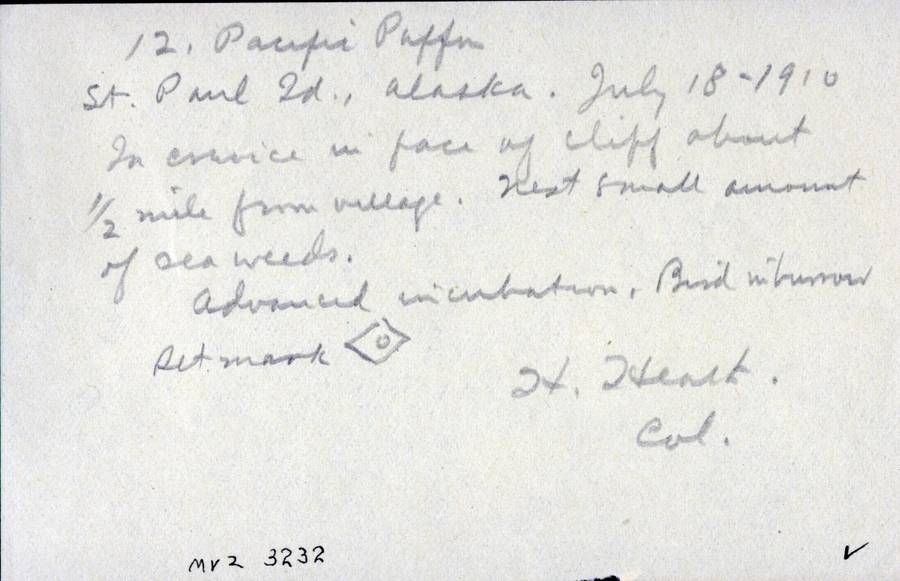 12. Pacific Puffin
St. Paul Id., Alaska. July 18-1910
In crevice in face of cliff about
1/2 mile from village. Nest small amount
of sea weeds.
Advanced incubation, Bird in burrow
Set mark 0
H. Heath.
Col.
MVZ 3232